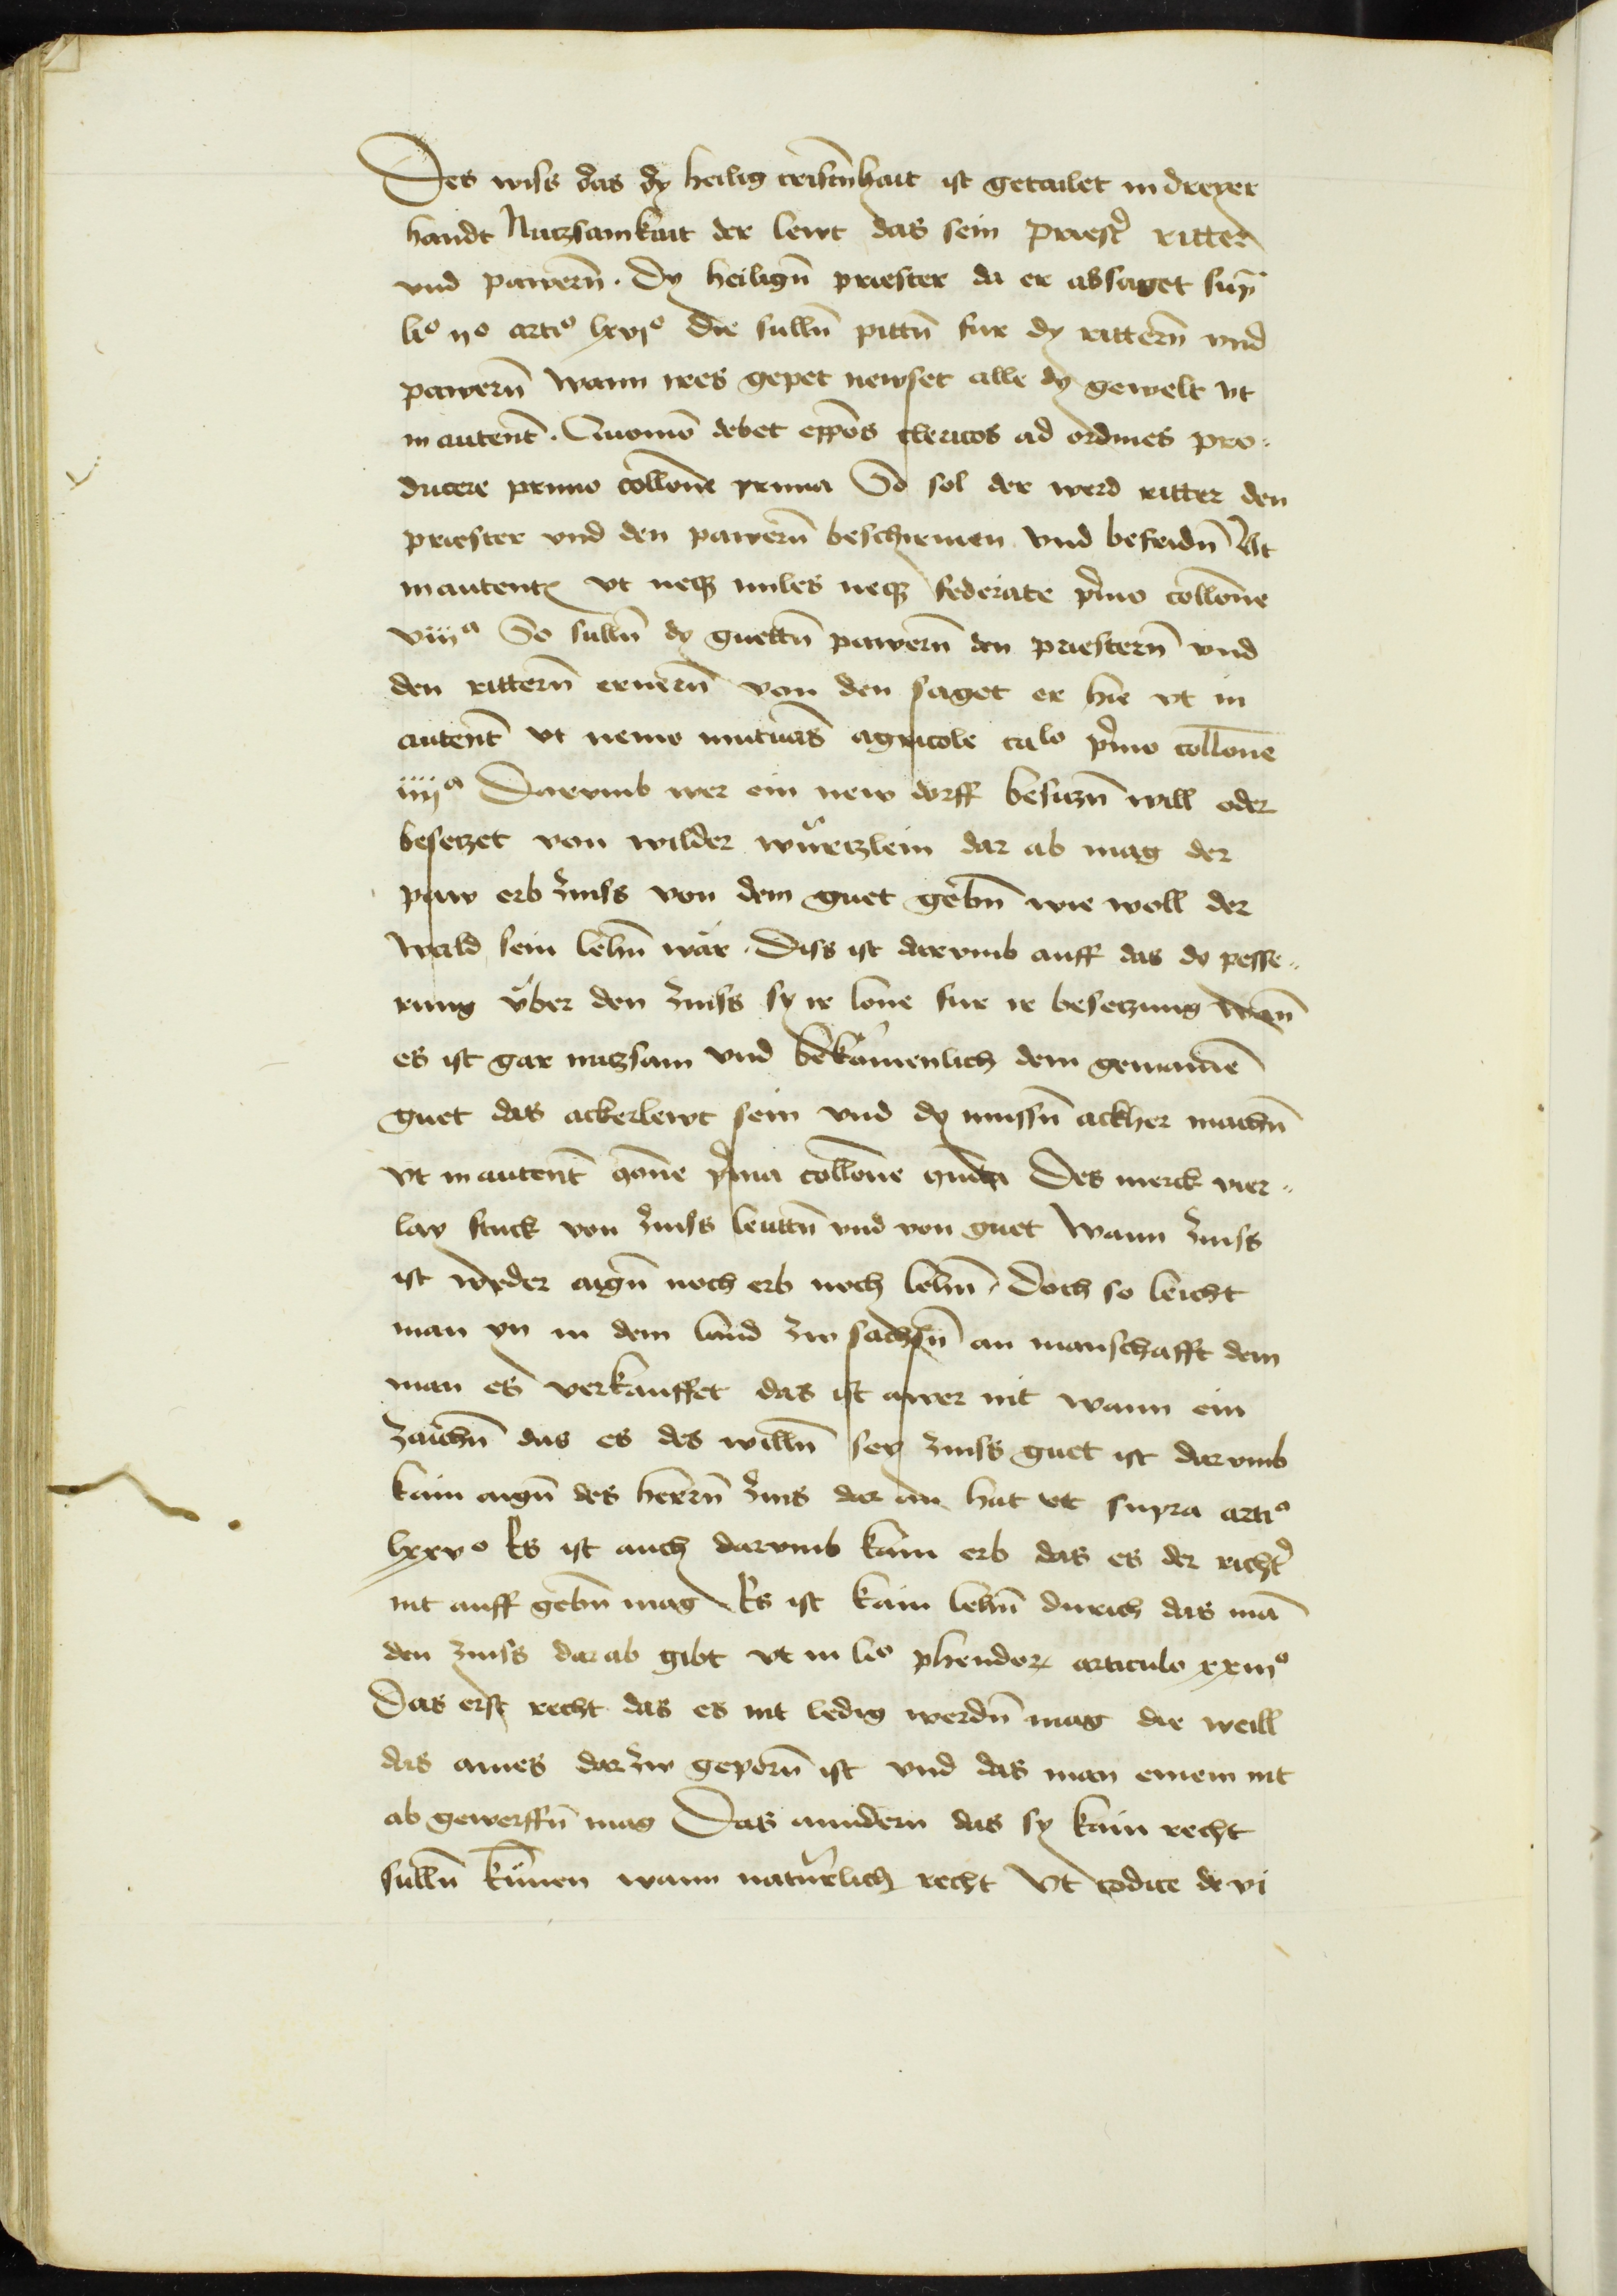 Des wiss das dy heilig cristnhait ist getailet in dreyer
handt Nuczsamkait der lewt das sein priestr ritter
vnd pawern. Dy heilign priester da er absaget supra
lio iio artio lxvio die sulln pittn fur dy rittern vnd
pawern wann ires gepet newset alle dy gewelt vt
in autent. Quomo debet epos clericos ad ordines pro-
ducere primo collone prima So sol der werd ritter den
priester vnd den pawern beschirmen vnd befridn Ut
in autent vt neqz miles neqz federate primo collone
viiia So sulln dy guettn pawern den priestern vnd
den rittern ernern von den saget er hie vt in
autent vt nemo mutuas agricole calo primo collone
iiiia Darvmb wer ein new dorff besiczn will oder
besetzet von wilder wurtzlein dar ab mag der
paw erb zinss von dem guet gebn wie woll der
wald sein lehn wär. Diss ist darvmb auff das do pesse-
rung vber den zinss sy ir lone fur ir besetzung wan
es ist gar nuczsam vnd bekamenlich dem gemaine
guet das ackerlewt sein vnd dy mussn ackher machn
vt in autent prima collone Des merck vier-
lay stuck von zinss leuttn vnd von guet Wann zinss
ist weder aign noch erb noch lehn, Doch so leicht
man yn in dem land zw sachsn an manschafft dem
man es verkauffet das ist awer nit wann ein
zaichn das es des willn sey zinss guet ist darvmb
kain aign des herrn zins dar an hat vt supra artio
lxxvo Es ist auch darvmb kain erb das es der richtr
nit auff gebn mag Es ist kain lehn durich das ma
den zinss dar ab gibt vt in lio phendor articulo xxiiio
Das erst recht das es nit ledig werdn mag die weill
das aines dar zw geporn ist vnd das man einem nit
ab gewerffn mag Das anndern das sy kain recht
sulln kunen wann naturlich recht Vt codice de vi